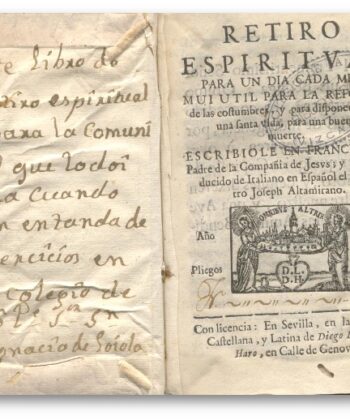 te libro do
tiro espiritual
para la Comuni
l que lo doi
la cuando
en entanda de
ercicios en
colegio de
Sn
gnacio de Loiola
RETIRO
ESPIRITVA
PARA UN DIA CADA ME
MUI UTIL PARA LA REFO
de las costumbres, y para dispone
una santa vida, para una buen
muerte.
ESCRIBIOLE EN FRANC
Padre de la Compañia de Jesvs; y
ducido de Italiano en Español el
tro Joseph Altamirano.
Año
Pliegos
D.L.
D.H.
Con licencia: En Sevilla, en la
Castellana, y Latina de Diego L
Haro, en Calle de Genov